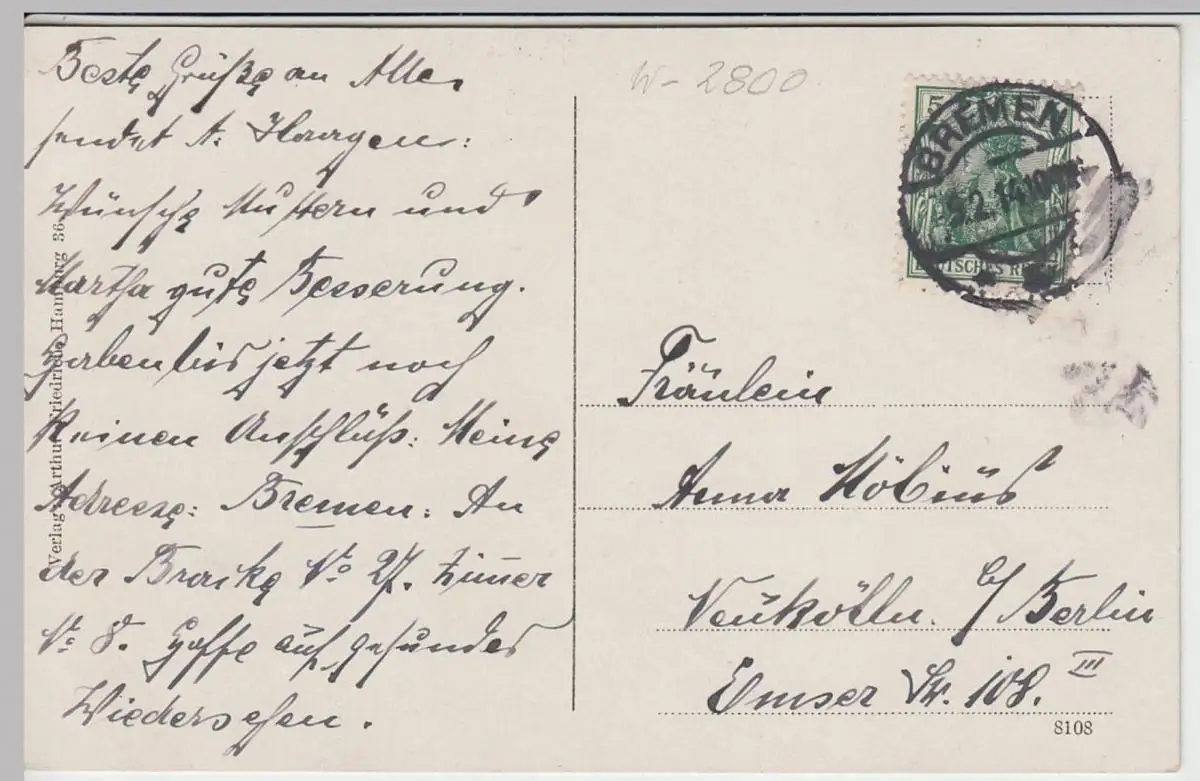 Beste Grüße an Alle
sendet A. Haagen:
Wünsche Muttern und
Martha gute Besserung.
Haben bis jetzt noch
keinen Anschlüß: Meine
Adresse: Bremen: An
der Brake No 27. Zimer
No 8. Hoffe auf gesundes
Wiedersehen.
Verlag Arthur Friedrich, Hamburg 36
W-2800
BREMEN
5.2.14
DEUTSCHES REICH
Fräulein
Anna Möbius
Neükölln. b/ Berlin
Emser Str. 108. III
8108